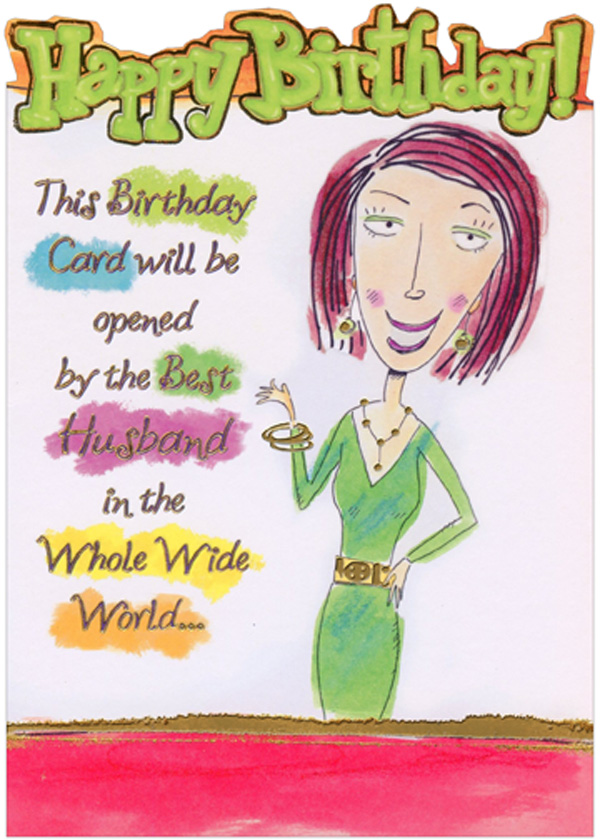 Happy Birthday!
This Birthday
Card will be
opened
by the Best
Husband
in the
Whole Wide
World...